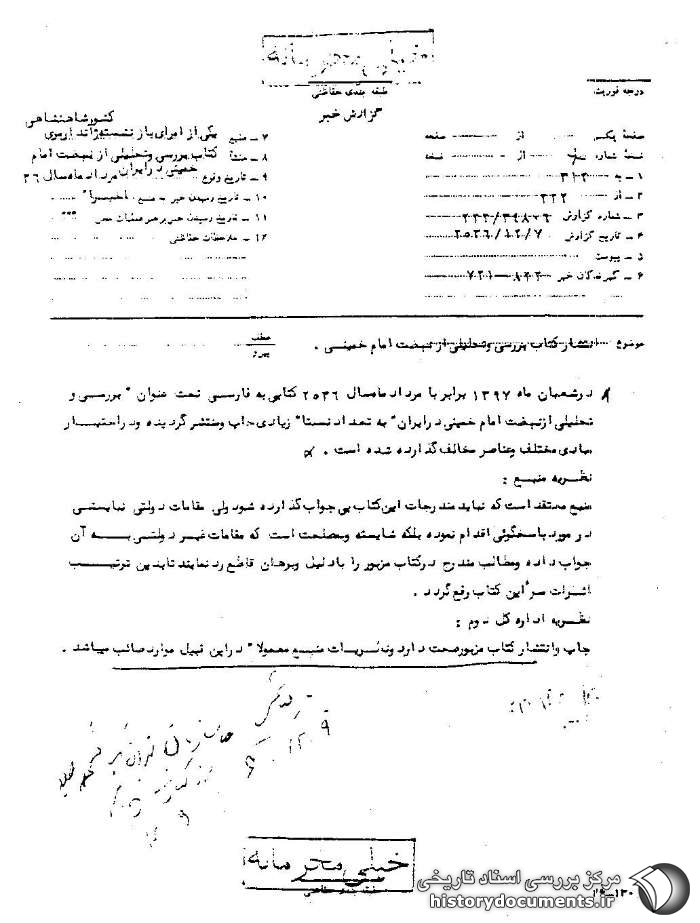 خیلی محرمانه
طبقه بندی حفاظتی
درجه فوریت
گزارش خبر
صفحه یکم از صفحه
نسخهٔ شماره از نسخه
۱ - به ۳۱۲
۲ - از ۳۲۲
۳ - شماره گزارش
۴ - تاریخ گزارش ۲۵۳۶/۱۲/۷
۵ - پیوست
۶ - گیرندگان خبر
کشورشاهنشاهی
۷ - منبع یکی از امرای بازنشسته ژاندارمری
۸ - منشأ کتاب بررسی وتحلیلی از نهضت امام
خمینی درایران
۹ - تاریخ وقوع مردادماه سال ۳۶
۱۰ - تاریخ رسیدن خبر به منبع اخیرا"
۱۱ - تاریخ رسیدن خبر به رهبر عملیات محل
۱۲ - ملاحظات حفاظتی
موضوع انتشار کتاب بررسی وتحلیلی از نهضت امام خمینی .
عطف
پیرو
درشعبان ماه ۱۳۹۷ برابر با مردادماه سال ۲۵۳۶ کتابی به فارسی تحت عنوان " بررسی و
تحلیلی ازنهضت امام خمینی درایران" به تعداد نسبتا" زیادی چاپ ومنتشر گردیده ودراختیار
مبادی مختلف وعناصر مخالف گذارده شده است .
نظریه منبع :
منبع معتقد است که نباید مندرجات این کتاب بی جواب گذارده شود ولی مقامات دولتی نبایستی
در مورد پاسخگوئی اقدام نموده بلکه شایسته ومصلحت است که مقامات غیر دولتی به آن
جواب داده ومطالب مندرج درکتاب مزبور را بادلیل وبرهان قاطع رد نمایند تابدین ترتیب
اثرات سوء این کتاب رفع گردد .
نظریه اداره کل دوم :
چاپ وانتشار کتاب مزبورصحت دارد ونظریات منبع معمولا" دراین قبیل موارد صائب میباشد .
خیلی محرمانه
طبقه بندی حفاظتی
مرکز بررسی اسناد تاریخی
historydocuments.ir